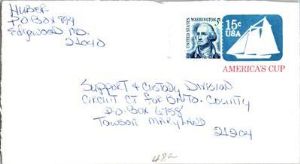 HUBER
P.O BOX 894
Edgewood MD.
21040
UNITED STATES
WASHINGTON
5
15c
USA
AMERICA'S CUP
Support & Custody Division
Circuit CT for Balto. County
P.O. Box 6754
Towson Maryland
21204